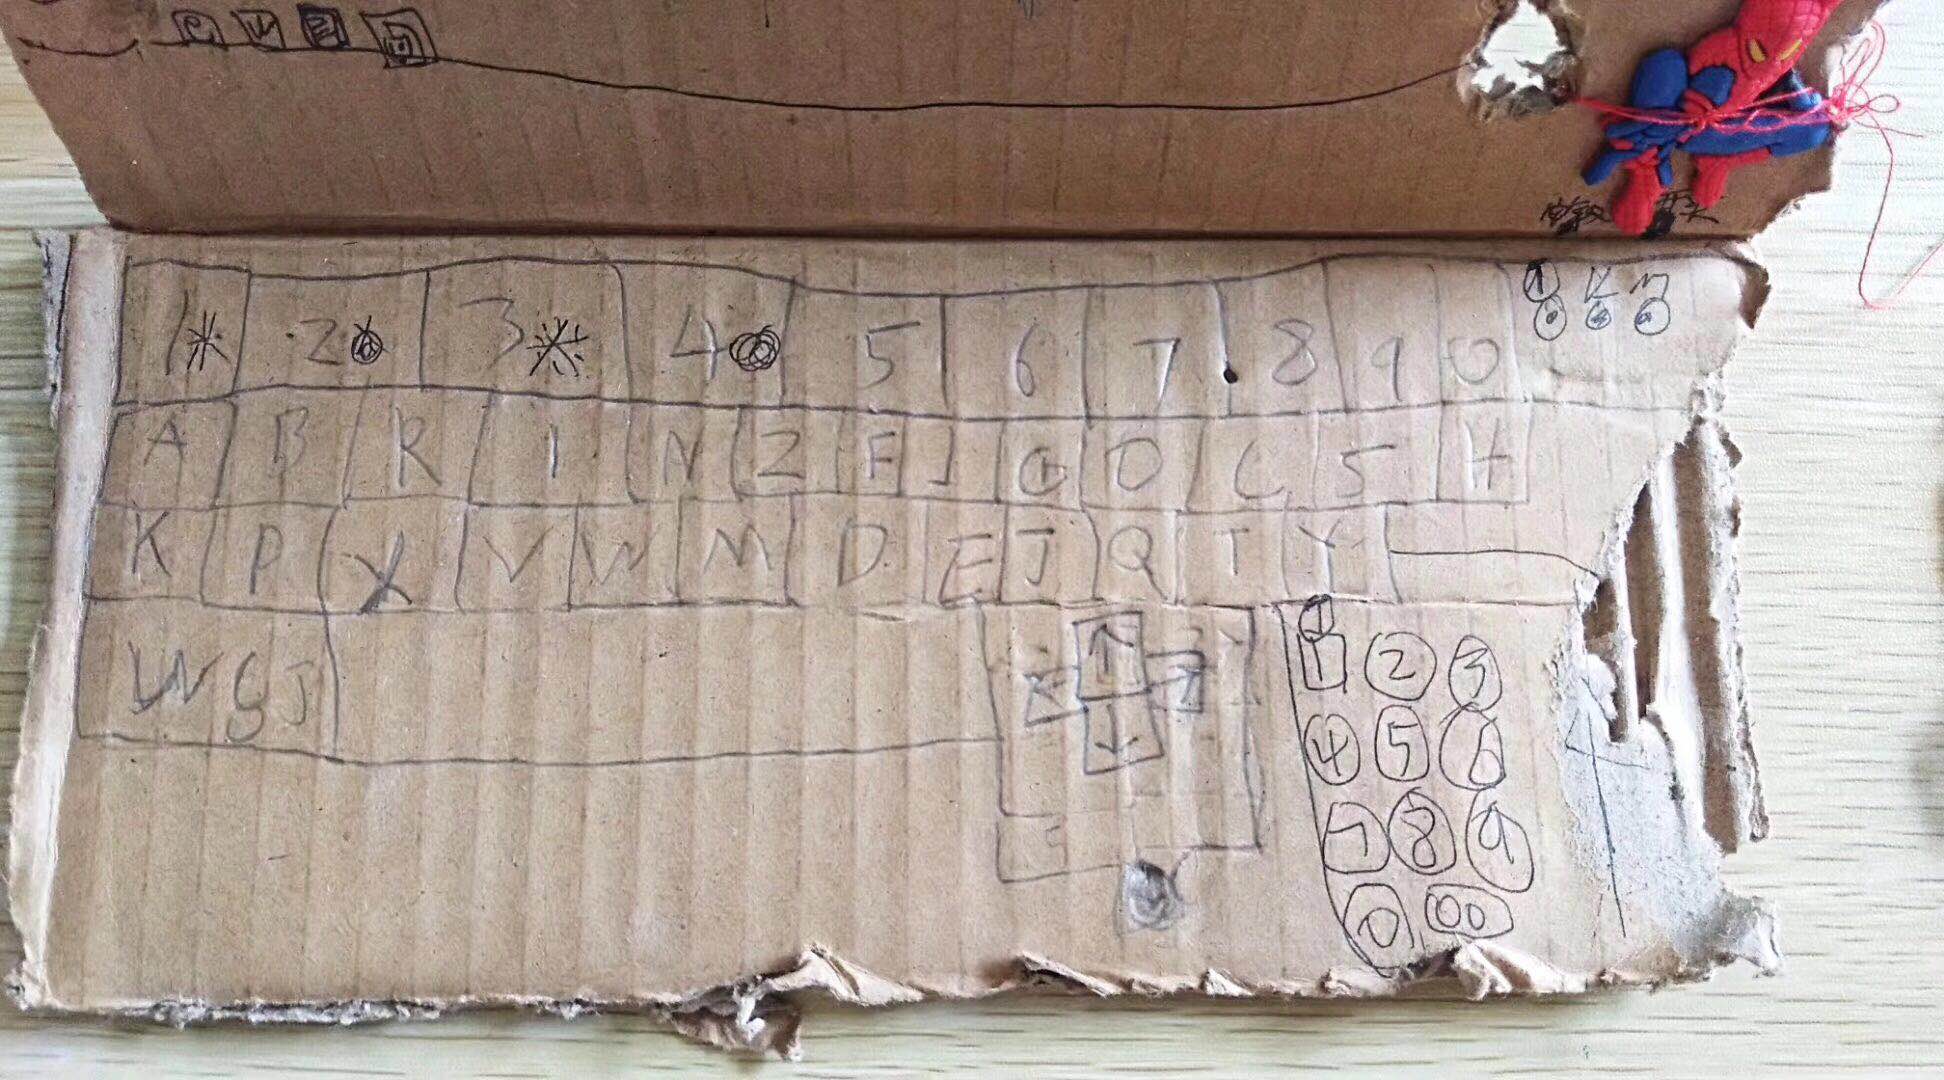 1 2 3 4 5 6 7 8 9 0
K M
A B R I N Z F J G O C S H
K P X V W M D E J Q T Y
↑
W S J
← →
↓
1 2 3
4 5 6
7 8 9
0 00